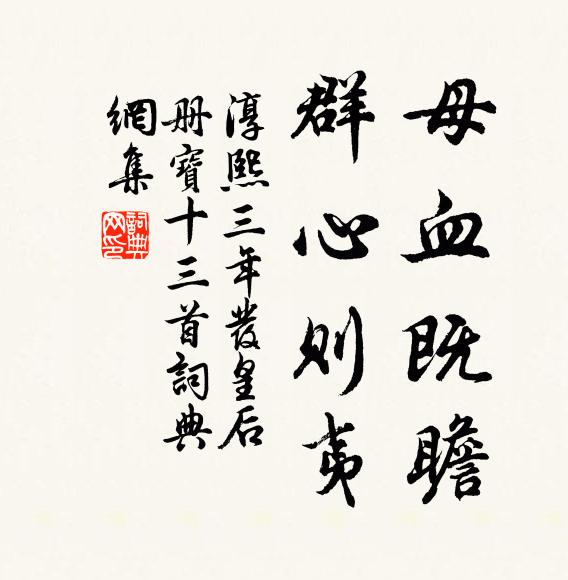 母血既瞻
群心则夷
淳熙三年發皇后
册寶十三首詞典
網集
詞典網印